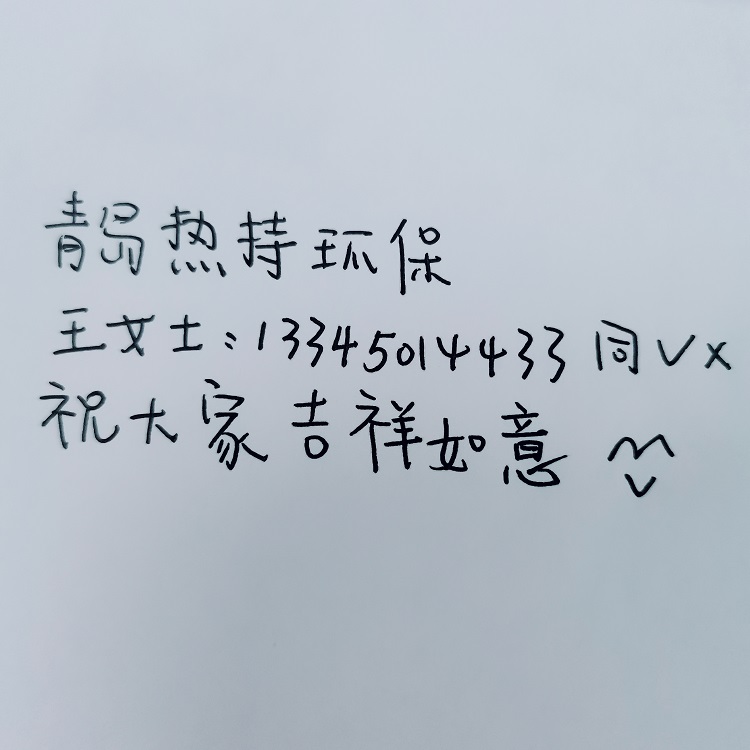 青岛热持环保
王女士：13345014433 同vx
祝大家吉祥如意